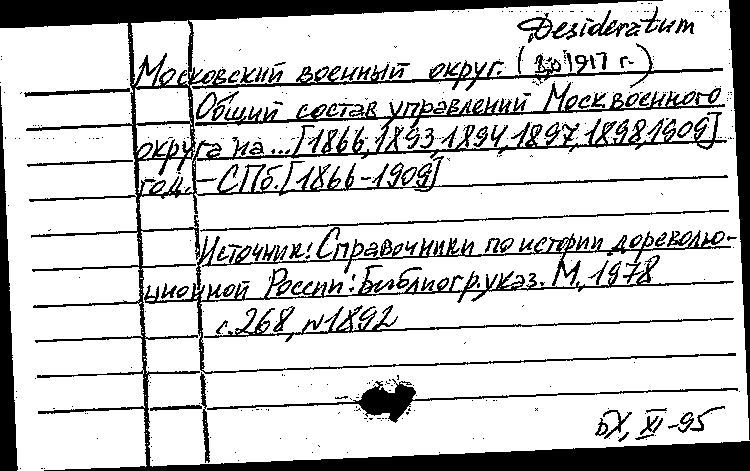 Desideratum
Московский военный округ. (до 1917 г.)
Общий состав управлений Моск.военного
округа на...[1866,1893,1894,1897,1898,1909]
год. – СПб.[1866-1909]
Источник: Справочники по истории дореволю-
ционной России: Библиогр.указ. М., 1978
с.268, №1892
БХ, XI-95